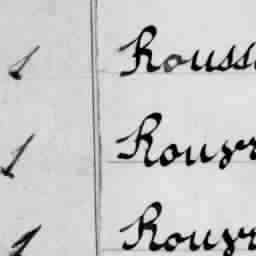 1 Rouss
1 Rouyr
1 Rouyr